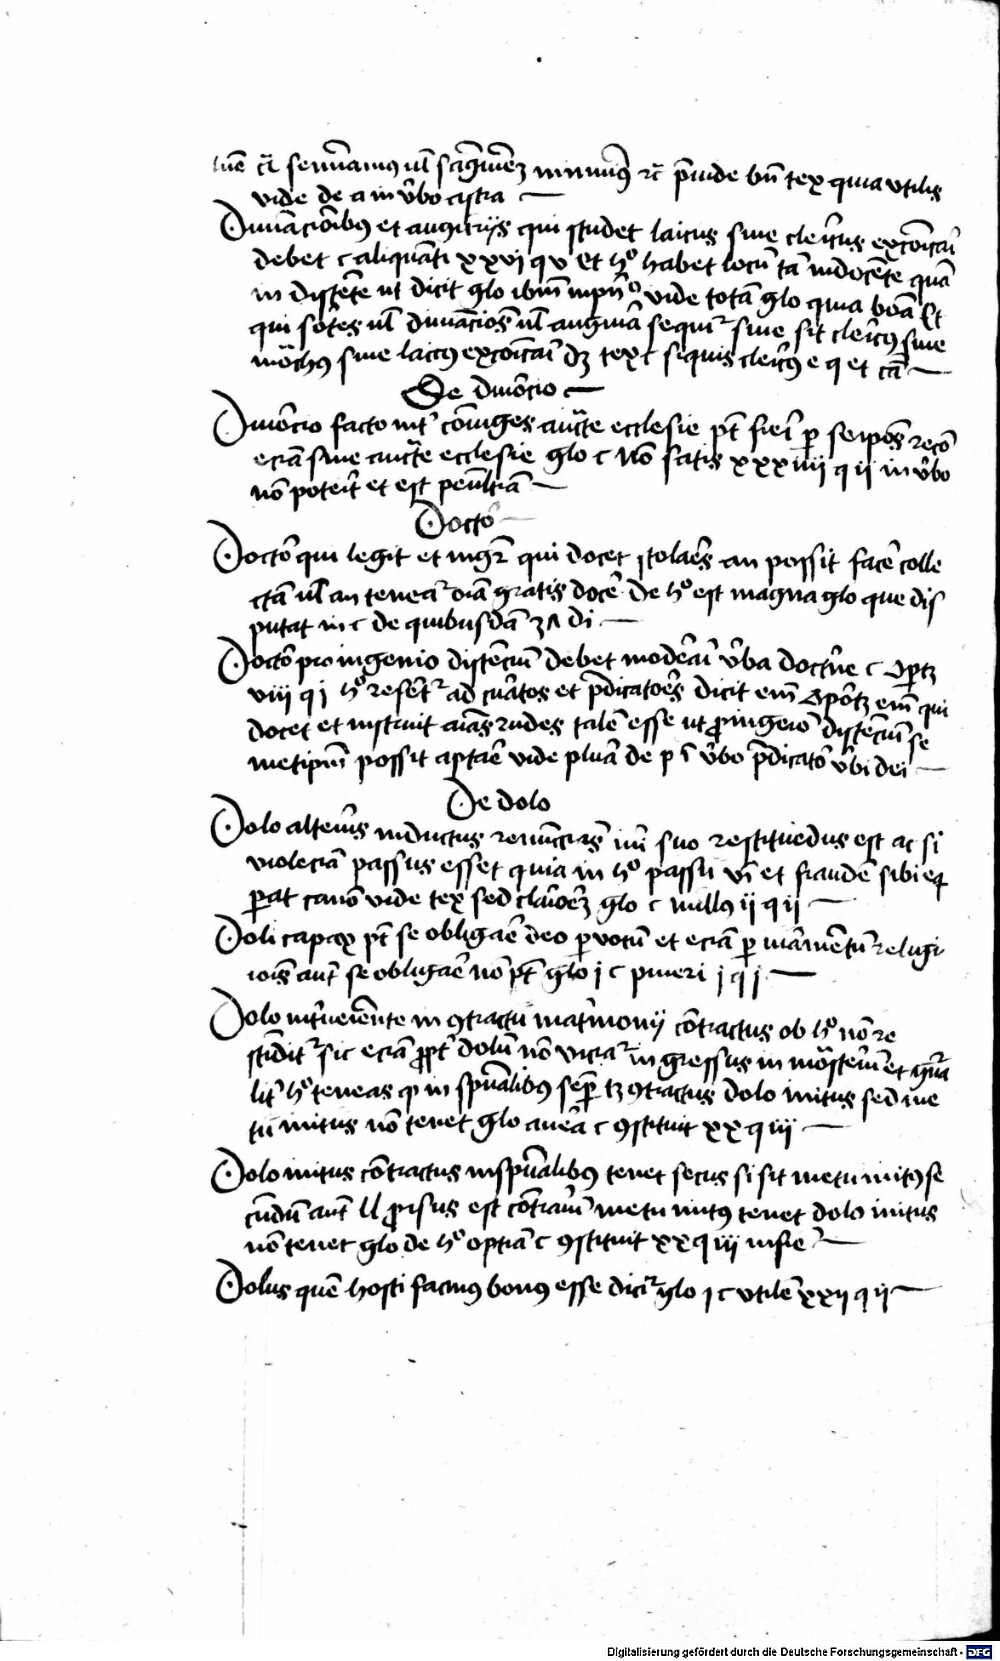 tuē cā seruamus ul' sagīuēꝫ minuīꝰ ⁊c̄ p̄uide bn̄ tex quia vtilis
vide de a in v̄bo astra
Diuinacioībus et auguriis qui studet laicus siue cleric̄us excōicāī
debet c aliquāti xxvi q v Et hº habet locū tā indocēte quā
in discēte ut dicit glo ibīdē in pn̄º vide totā glo quia bōa Et
qui sōtes ul' diuinacioēs ul' auguriā sequiʳ siue sit clericꝰ siue
mōchꝰ siue laicꝰ excōicaī dꝫ tex c siquis clericꝰ e q et cā
De diuorcio
Diuorcio facto int' cōiuges auc̄te ecclesie pt̄ fieri p seipōs recō
eciā sine auc̄te ecclesie glo c Nō satis xxxiiij q ij in v̄bo
nō poterit et est penl̄tiā
Doctor
Doctor qui legit et mgr̄ qui docet scolaēs an possit facē colle
ctā ul' an teneaʳ oīa gratis docē de hº est magna glo que dis
putat in c de quibusdā 3ᴧ di
Doctor pro ingenio discēciū debet modēaī v̄ba doctrīe c Oportꝫ
viii q j hº referʳ ad curatos et p̄dicatoēs dicit enī Oportꝫ enī qui
docet et instruit aīas rudes talē esse ut pro ingenio discēciū se
metipm̄ possit aptaē vide plurā de p i v̄bo p̄dicator v̄bi dei
De dolo
Dolo alterius inductus renūcias iuri suo restituēdus est ac si
violeciā passus esset quia in hº passu vī et fraudē sibi eq
parat canō vide tex sed clarioēꝫ glo c nullꝰ ij q ij
Doli capax pt̄ se obligaē deo p votū et eciā p iuramētū religi
ioīs aut̄ se obligaē nō pt̄ glo j c pueri j q j
Dolo int̄ueiēnte in ꝯtractu mat̄imonij cōtractus ob hº nō re
scīditʳ sic eciā propt' dolū nō viciaʳ ingressus in mōasteriū et gn̄a
lit' hº teneas q in spūalibꝰ semp tꝫ ꝯtractus dolo initus sed me
tu initus nō tenet glo aurea c ꝯstituit xx q iij
Dolo initus cōtractus in spūalibꝰ tenet secus si sit metu initꝰ se
cūdū aut̄ ll prisus est cōtrariū metu initꝰ tenet dolo initus
nō tenet glo de hº optīa c ꝯstituit xx q iij in fiē
Dolus quē hosti facimꝰ bonꝰ esse diciʳ glo j c vtilē xxij q ij
Digitalisierung gefördert durch die Deutsche Forschungsgemeinschaft - DFG